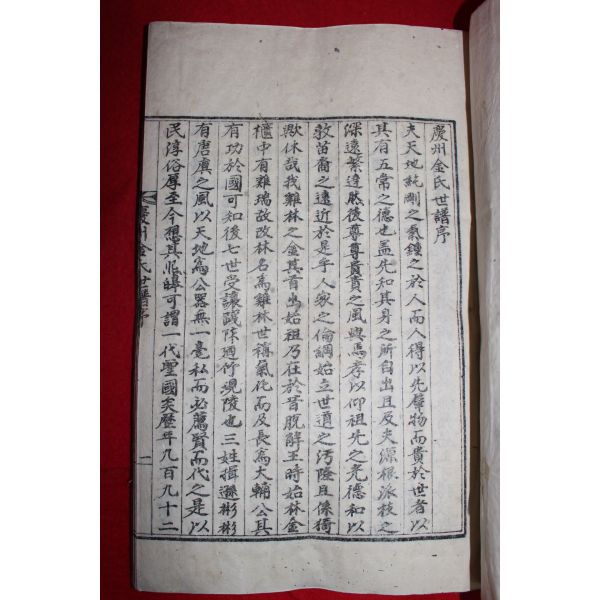 慶州金氏世譜序
夫天地純剛之氣鍾之於人而人得以先羣物而貴於世者以
其有五常之德也盖先知其身之所自出且及夫源根派枝之
深遠繁達然後尊尊貴貴之風興焉孝以仰祖先之光德和以
敦苗裔之遠近於是乎人家之倫綱始立世道之汚隆且係猗
歟休哉我雞林之金其首出始祖乃在於昔脫解王時始林金
櫃中有雞瑞故改林名爲雞林世稱氣化而及長爲大輔公其
有功於國可知後七世受讓踐陟廼竹現陵也三姓揖遜彬彬
有唐虞之風以天地爲公器無一毫私而必薦賢而代之是以
民淳俗厚至今想其熙皥可謂一代聖國矣歷年九百九十二
慶州金氏世譜序
一